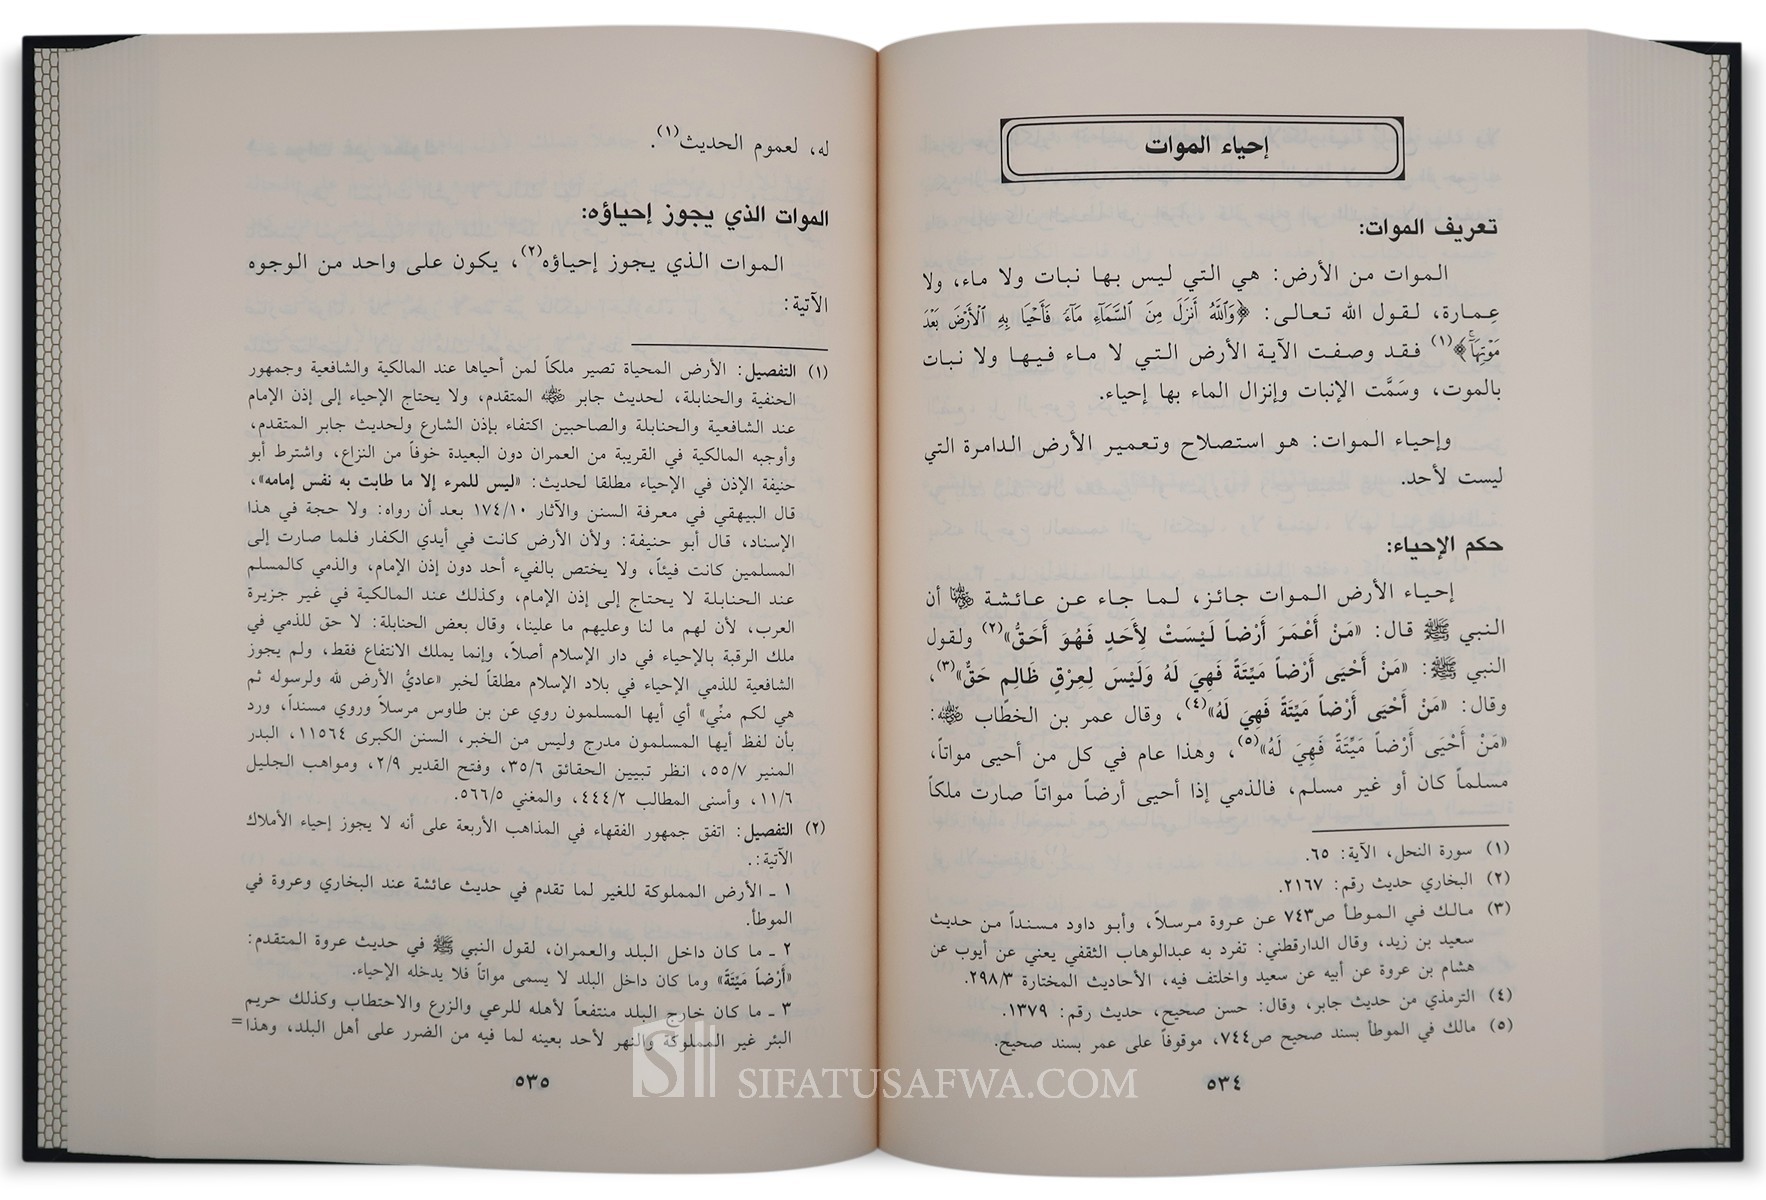 إحياء الموات
تعريف الموات:
الموات من الأرض: هي التي ليس بها نبات ولا ماء، ولا
عِمارة، لقول الله تعالى: ﴿وَٱللَّهُ أَنزَلَ مِنَ ٱلسَّمَآءِ مَآءً فَأَحْيَا بِهِ ٱلْأَرْضَ بَعْدَ
مَوْتِهَآ﴾(١) فقد وصفت الآية الأرض التي لا ماء فيها ولا نبات
بالموت، وسَمَّت الإنبات وإنزال الماء بها إحياء.
وإحياء الموات: هو استصلاح وتعمير الأرض الدامرة التي
ليست لأحد.
حكم الإحياء:
إحياء الأرض الموات جائز، لما جاء عن عائشة رضي الله عنها أن
النبي ﷺ قال: «مَنْ أَعْمَرَ أَرْضاً لَيْسَتْ لِأَحَدٍ فَهُوَ أَحَقُّ»(٢) ولقول
النبي ﷺ: «مَنْ أَحْيَى أَرْضاً مَيِّتَةً فَهِيَ لَهُ وَلَيْسَ لِعِرْقٍ ظَالِمٍ حَقٌّ»(٣)،
وقال: «مَنْ أَحْيَى أَرْضاً مَيِّتَةً فَهِيَ لَهُ»(٤)، وقال عمر بن الخطّاب رضي الله عنه:
«مَنْ أَحْيَى أَرْضاً مَيِّتَةً فَهِيَ لَهُ»(٥)، وهذا عام في كل من أحيى مواتاً،
مسلماً كان أو غير مسلم، فالذمي إذا أحيى أرضاً مواتاً صارت ملكاً
(١) سورة النحل، الآية: ٦٥.
(٢) البخاري حديث رقم: ٢١٦٧.
(٣) مالك في الموطأ ص٧٤٣ عن عروة مرسلاً، وأبو داود مسنداً من حديث
سعيد بن زيد، وقال الدارقطني: تفرد به عبدالوهاب الثقفي يعني عن أيوب عن
هشام بن عروة عن أبيه عن سعيد واختلف فيه، الأحاديث المختارة ٢٩٨/٣.
(٤) الترمذي من حديث جابر، وقال: حسن صحيح، حديث رقم: ١٣٧٩.
(٥) مالك في الموطأ بسند صحيح ص٧٤٤، موقوفاً على عمر بسند صحيح.
٥٣٤
له، لعموم الحديث(١).
الموات الذي يجوز إحياؤه:
الموات الذي يجوز إحياؤه(٢)، يكون على واحد من الوجوه
الآتية:
(١) التفصيل: الأرض المحياة تصير ملكاً لمن أحياها عند المالكية والشافعية وجمهور
الحنفية والحنابلة، لحديث جابر رضي الله عنه المتقدم، ولا يحتاج الإحياء إلى إذن الإمام
عند الشافعية والحنابلة والصاحبين اكتفاء بإذن الشارع ولحديث جابر المتقدم،
وأوجبه المالكية في القريبة من العمران دون البعيدة خوفاً من النزاع، واشترط أبو
حنيفة الإذن في الإحياء مطلقا لحديث: «ليس للمرء إلا ما طابت به نفس إمامه»،
قال البيهقي في معرفة السنن والآثار ١٧٤/١٠ بعد أن رواه: ولا حجة في هذا
الإسناد، قال أبو حنيفة: ولأن الأرض كانت في أيدي الكفار فلما صارت إلى
المسلمين كانت فيئاً، ولا يختص بالفيء أحد دون إذن الإمام، والذمي كالمسلم
عند الحنابلة لا يحتاج إلى إذن الإمام، وكذلك عند المالكية في غير جزيرة
العرب، لأن لهم ما لنا وعليهم ما علينا، وقال بعض الحنابلة: لا حق للذمي في
ملك الرقبة بالإحياء في دار الإسلام أصلاً، وإنما يملك الانتفاع فقط، ولم يجوز
الشافعية للذمي الإحياء في بلاد الإسلام مطلقاً لخبر «عاديُّ الأرض لله ولرسوله ثم
هي لكم منّي» أي أيها المسلمون روي عن بن طاوس مرسلاً وروي مسنداً، ورد
بأن لفظ أيها المسلمون مدرج وليس من الخبر، السنن الكبرى ١١٥٦٤، البدر
المنير ٥٥/٧، انظر تبيين الحقائق ٣٥/٦، وفتح القدير ٢/٩، ومواهب الجليل
١١/٦، وأسنى المطالب ٤٤٤/٢، والمغني ٥٦٦/٥.
(٢) التفصيل: اتفق جمهور الفقهاء في المذاهب الأربعة على أنه لا يجوز إحياء الأملاك
الآتية:.
١ ـ الأرض المملوكة للغير لما تقدم في حديث عائشة عند البخاري وعروة في
الموطأ.
٢ ـ ما كان داخل البلد والعمران، لقول النبي ﷺ في حديث عروة المتقدم:
«أَرْضاً مَيِّتَةً» وما كان داخل البلد لا يسمى مواتاً فلا يدخله الإحياء.
٣ ـ ما كان خارج البلد منتفعاً لأهله للرعي والزرع والاحتطاب وكذلك حريم
البئر غير المملوكة والنهر لأحد بعينه لما فيه من الضرر على أهل البلد، وهذا=
٥٣٥
SIFATUSAFWA.COM